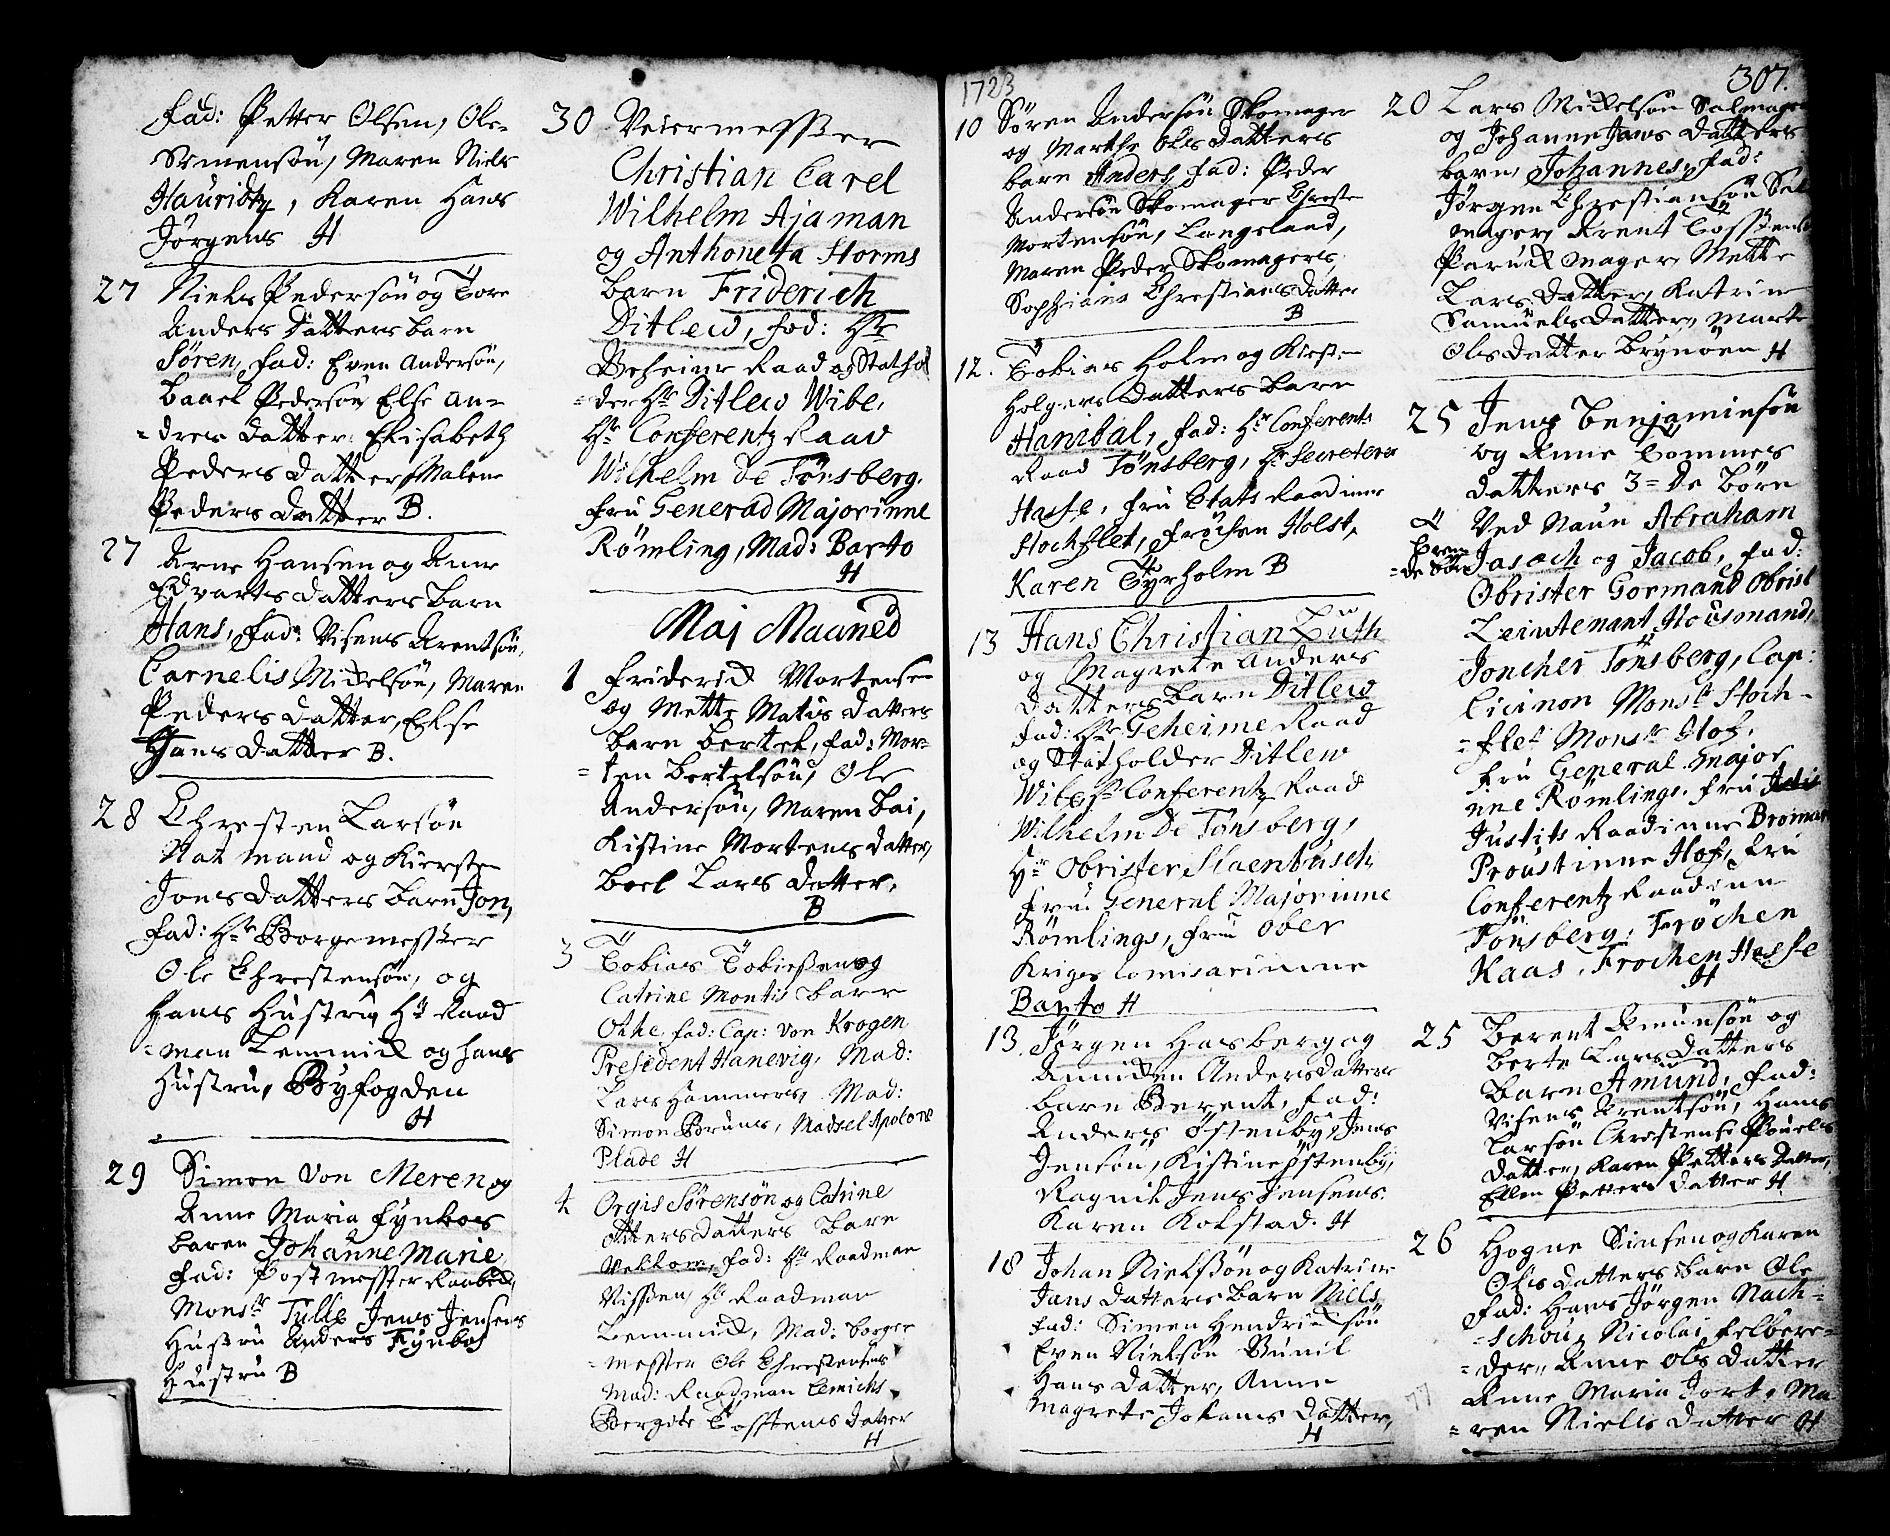 Fad: Petter Olsen, Ole
Simensøn, Maren Niels
Hauridtz, Karen Hans
Jørgens H
27 Niels Pedersøn og Tore
Anders Datters barn
Søren, Fad: Even Andersøn,
Baael Pedersøn Else An=
=dres Datter: Elisabeth
Peders Datter Malene
Peders Datter B.
27 Arne Hansen og Anne
Edvarts Datters Barn
Hans, Fad: Visens Arentsøn,
Carnelis Mickelsøn, Maren
Peders Datter, Else
Hans Datter B.
28 Chresten Larsøn
Nat mand og Kiersten
Jons Datters barn Jon,
Fad: Hr Borgemester
Ole Chrestensøn, og
Hans Hustru, Hr Raad
=man Lemmick og hans
Hustru, Byfogden
H
29 Simon Von Meren og
Anne Maria Fynboes
baren Johanne Marie
Fad: Postmester
Monsr Tulle Jens Jensens
Hustru Anders Fynbos
Hustru B
30 Veiermesster
Christian Carel
Wilhelm Ajaman
og Anthoneta Storms
Barn Friderich
Ditlew, Fad: Hr
Geheime Raad og Stathol
=der Hr Ditlew Wibe,
Hr Conferentz Raad
Wilhelm De Tønsberg,
Fru Generad Majorinne
Rømling, Mad: Barto
H
Maj Maaned
1 Friderick Mortensen
og Mette Matis Datters
Barn Bertel, Fad: Mor=
=ten Bertelsøn, Ole
Andersøn, Maren Bai,
Kistine Mortens Datter,
Boel Lars Datter,
B
3 Tobias Tobiesßen og
Catrine Montis Barn
Othe, Fad: Cap: von Krogen
President Hanevig, Mad:
Lars Hammers, Mad:
Simon Bruns, Madsel Apolone
Plade H
4 Orgis Sørensøn og Catrine
Otters Datters Barn
Fad: Hr Raadman
Nissen, Hr Raadman
Lemmick, Mad: borge
=mester Ole Chrestensens
Mad: Raadman Lemichs
Bergite Tostens Datter
H
1723
10 Søren Andersøn Skomager
og Marthe Ols Datters
barn Anders, Fad: Peder
Andersøn Skomager Chresten
Mortensøn, Langeland,
Maren Peder Skomagers,
Sophiana Chrestians Datter
B
12. Tobias Holm og Kirsten
Holgers Datters Barn
Hanibal, Fad: Hr Conferents
Raad Tønsberg, Hr Secreterer
Hasse, Fru Etats Raadinne
Stochflet, Frøchen Holst,
Karen Tyrholm B
13 Hans Christian Luth
og Magrete Anders
Datters barn Ditlew
Fad: Hr Geheime Raad
og Statholder Ditlew
Wibe Hr Conferentz Raad
Wilhelm De Tønsberg,
Hr Obrister Staenbusch
Fru General Majorinne
Rømlings, Fru Ober
Kriges Comisarinne
Barto H
13. Jørgen Hasberg og
Annicken Anders Datters
barn Berent, Fad:
Anders Østenby, Jens
Jensøn, Kistine Østenby,
Ragnil Jens Jensens,
Karen Kolstad. H
18 Johan Nielsßøn og Katrine
Jans Datters barn Niels,
Fad: Simen Hendricksøn
Even Nielsøn Gunil
Hans Datter, Anne
Magrete Johans Datter,
H
307.
20 Lars Mickelsøn Salmager
og Johanne Jans Datters
barn, Johannes, Fad:
Jørgen Chrestiansøn Sal
mager, Arent Tosßens
Paruck mager, Mette
Lars Datter, Katrine
Samuels Datter, Marte
Ols Datter Brynøen H
25 Jens Benjaminsøn
og Anne Tommes
Datters 3=de Børn
Ved Naun Abraham
Isaach og Jacob, Fad:
Obrister Gormand Obrist
Leiutenant Housmand,
Joncher Tønsberg, Cap:
Cicinon Monsr Stoch=
=flet Monsr Hof,
Fru General major
inne Rømlings, Fru
Justits Raadinne Broman
Proustinne Hof, Fru
Conferentz Raadinne
Tønsberg, Frøchen
Kaas, Frochen Hasse
H
25 Berent Amunsøn og
Berte Lars Datters
Barn Amund, Fad:
Visens Arentsøn, Hans
Larsøn Chrestense Pouels
Datter, Karen Petters Datter,
Ellen Petters Datter H
26 Hogne Simsen og Karen
Ols Datters barn Ole
Fad: Hans Jørgen Nach=
=schou, Nicolai Felbere=
=der, Anne Ols Datter
Anne Maria Jort, Ma
=ren Niels Datter H